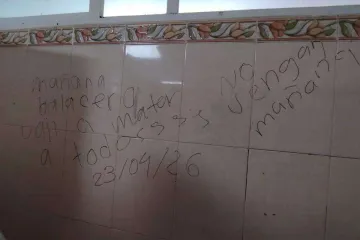 mañana
balacera
van a matar
a todos sss
23/09/26
No
vengan
mañana